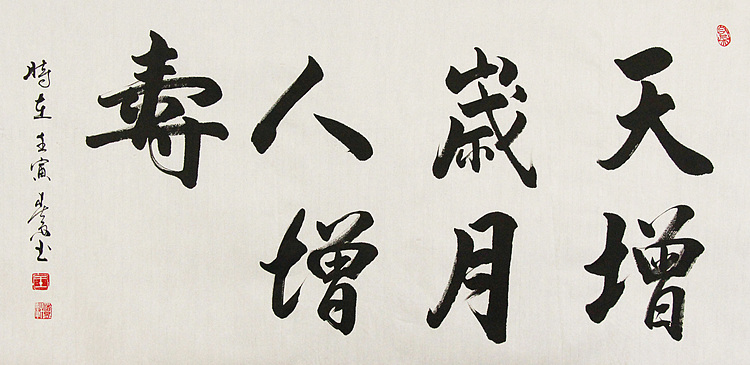 天增
歲月
人增
壽
時在壬寅
書